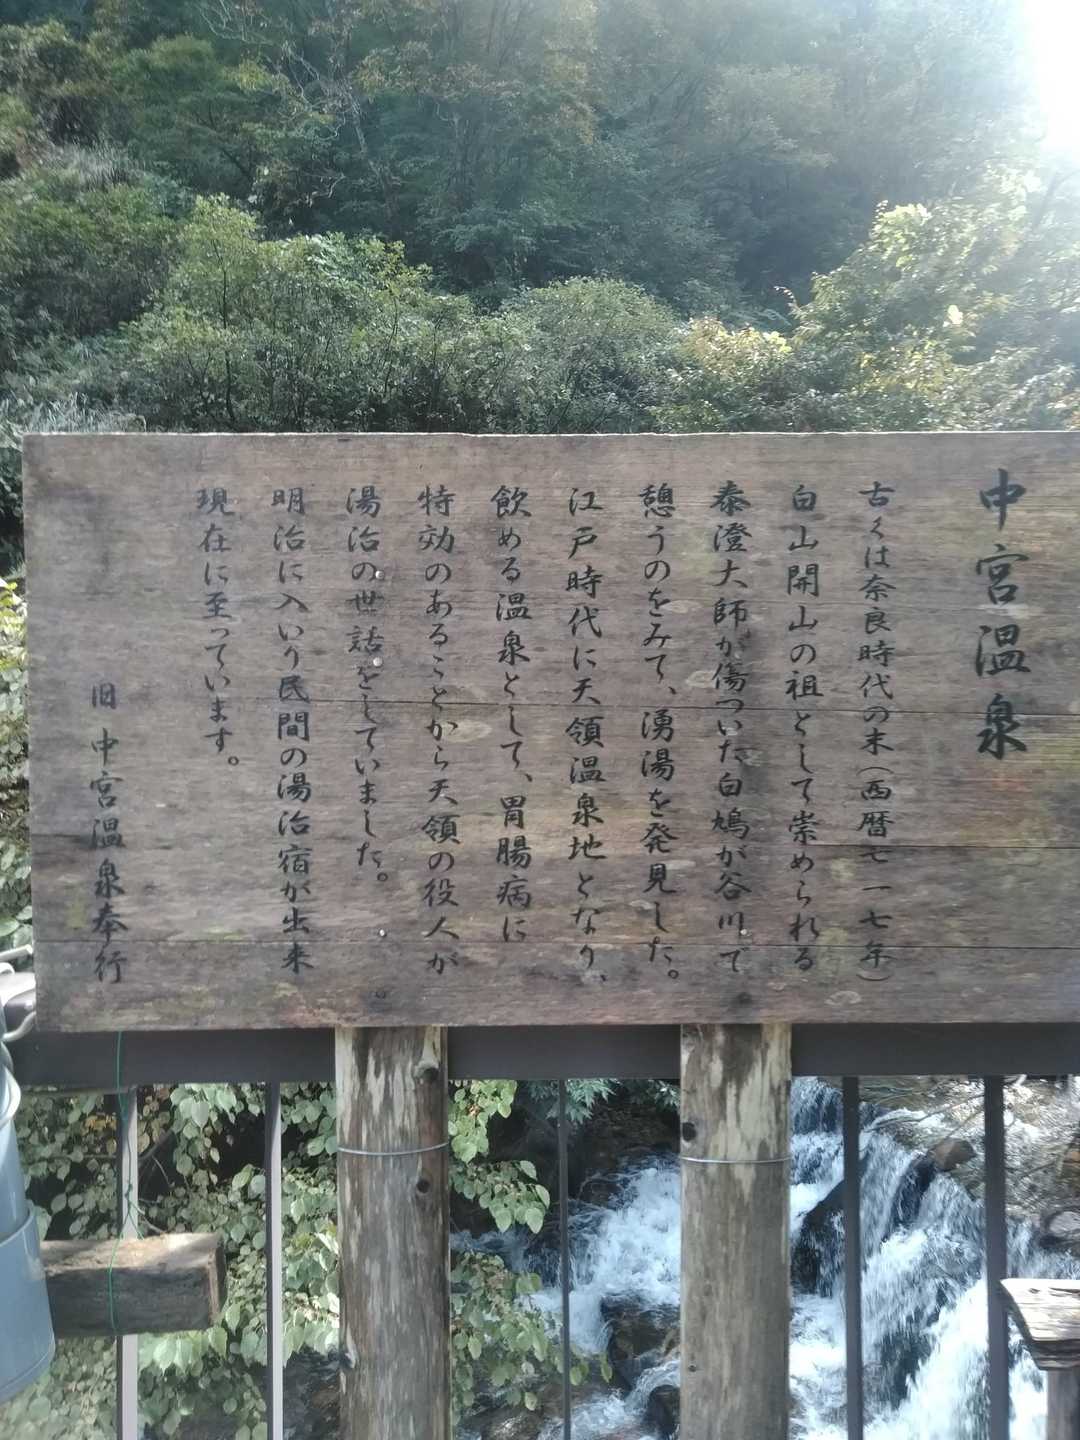 中宮温泉
古くは奈良時代の末(西暦七一七年)
白山開山の祖として崇められる
泰澄大師が傷ついた白鳩が谷川で
憩うのをみて、湧湯を発見した。
江戸時代に天領温泉地となり、
飲める温泉として、胃腸病に
特効のあることから天領の役人が
湯治の世話をしていました。
明治に入いり民間の湯治宿が出来
現在に至っています。
旧中宮温泉奉行